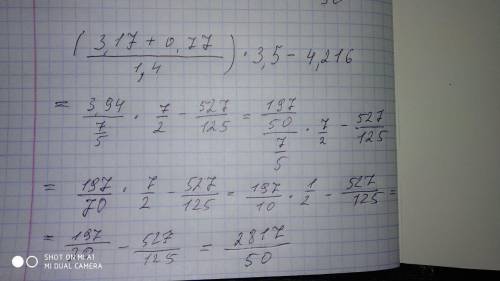 ( (3,17 + 0,77) / 1,4 ) · 3,5 − 4,216
= 3,94 / (7/5) · 7/2 − 527/125 = (197/50) / (7/5) · 7/2 − 527/125
= 197/70 · 7/2 − 527/125 = 197/10 · 1/2 − 527/125 =
= 197/20 − 527/125 = 2817/50
SHOT ON MI A2 LITE
MI DUAL CAMERA